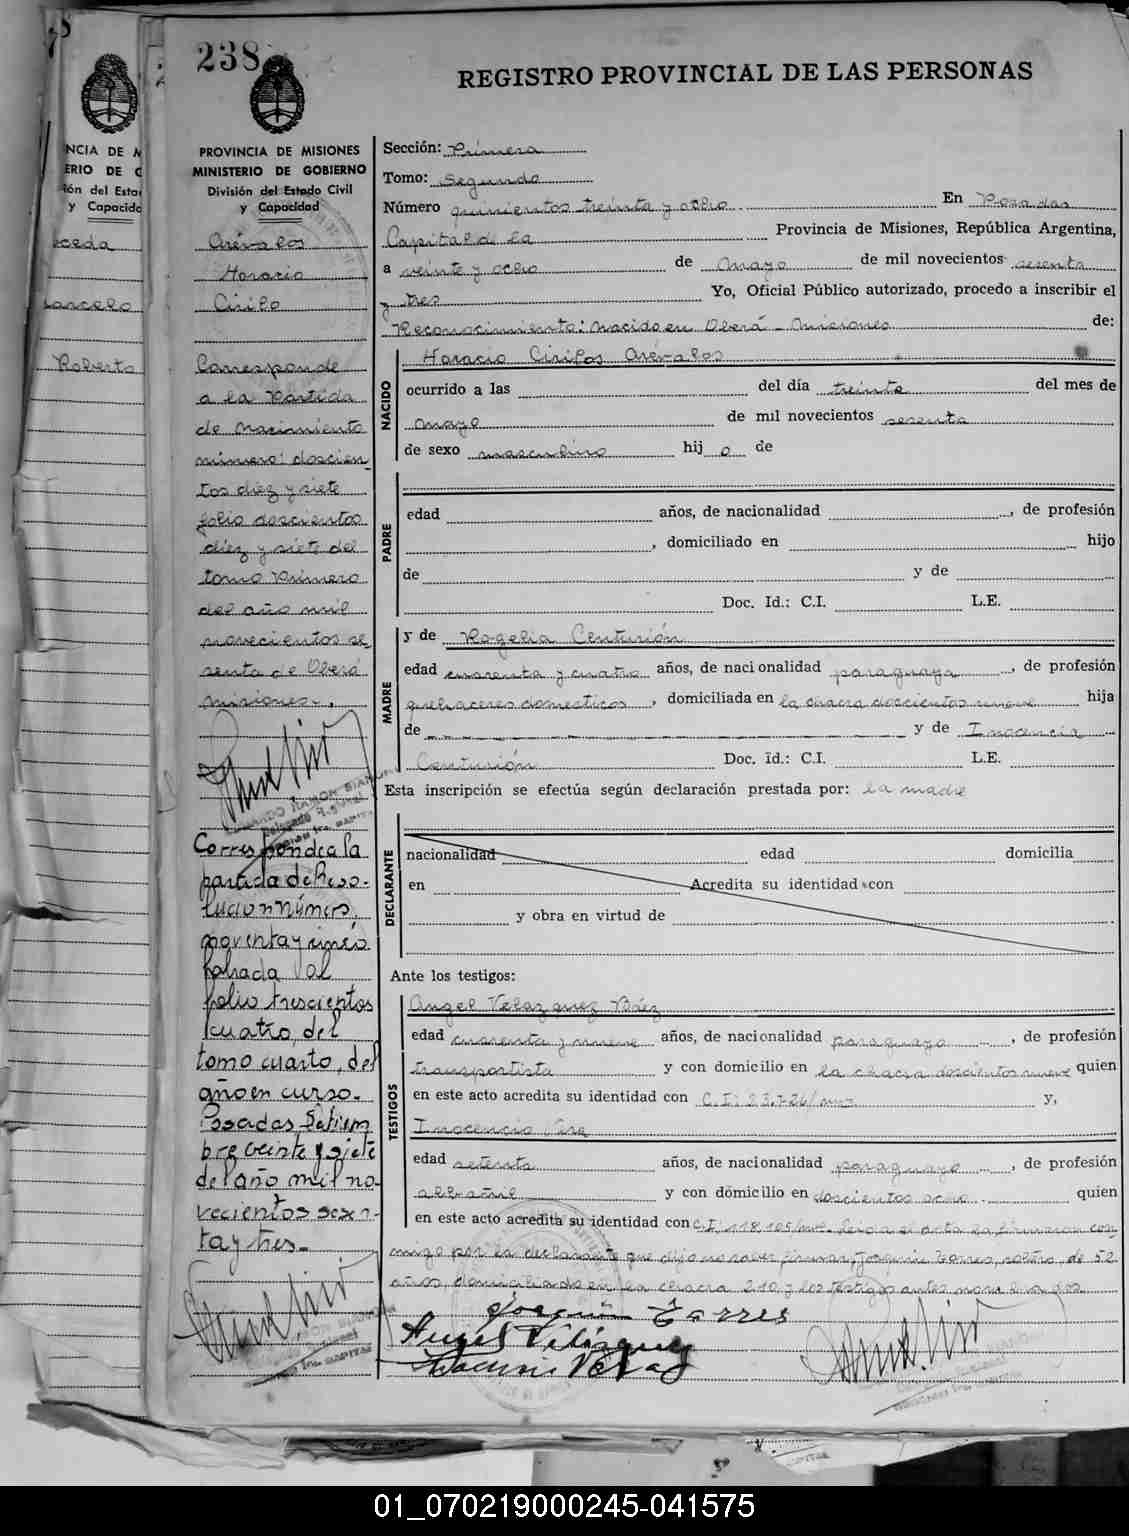 238
REGISTRO PROVINCIAL DE LAS PERSONAS
NCIA DE M
ERIO DE G
ión del Estad
y Capacida
ceda
Marcelo
Roberto
PROVINCIA DE MISIONES
MINISTERIO DE GOBIERNO
División del Estado Civil
y Capacidad
Arévalos
Horacio
Cirilo
Corresponde
a la Partida
de nacimiento
número: doscien-
tos diez y siete
folio doscientos
diez y siete del
tomo Primero
del año mil
novecientos se-
senta de Oberá
misiones.
Corresponde a la
partida de Reso-
lucion Número
noventa y cinco
foliada al
folio trescientos
cuatro, del
tomo cuarto, del
año en curso.
Posadas Setiem
bre veinte y siete
del año mil no-
vecientos sesen-
ta y tres.
Sección: Primera
Tomo: Segundo
Número quinientos treinta y ocho En Posadas
Capital de la Provincia de Misiones, República Argentina,
a veinte y ocho de mayo de mil novecientos sesenta
y tres Yo, Oficial Público autorizado, procedo a inscribir el
Reconocimiento: nacido en Oberá - Misiones de:
NACIDO
Horacio Cirilos Arévalos
ocurrido a las del día treinta del mes de
mayo de mil novecientos sesenta
de sexo masculino hij o de
PADRE
edad años, de nacionalidad , de profesión
, domiciliado en hijo
de y de
Doc. Id.: C.I. L.E.
MADRE
y de Rogelia Centurión
edad cuarenta y cuatro años, de nacionalidad paraguaya , de profesión
quehaceres domesticos , domiciliada en la chacra doscientos nueve hija
de y de Inocencia
Centurión Doc. Id.: C.I. L.E.
Esta inscripción se efectúa según declaración prestada por: la madre
DECLARANTE
nacionalidad edad domicilia
en Acredita su identidad con
y obra en virtud de
Ante los testigos:
TESTIGOS
Angel Velazquez Báez
edad cuarenta y nueve años, de nacionalidad paraguayo , de profesión
transportista y con domicilio en la chacra doscientos nueve quien
en este acto acredita su identidad con C.I: y,
Inocencio
edad setenta años, de nacionalidad paraguayo , de profesión
albañil y con domicilio en doscientos quien
en este acto acredita su identidad con C.I: 118.105 leida el acta la firmaron con-
migo por la declarante que dijo no saber firmar, Joaquin Torres, soltero, de 52
años, domiciliado en la chacra 210 y los testigos antes nombrados.
Joaquin Torres
Angel Velázquez
01_070219000245-041575